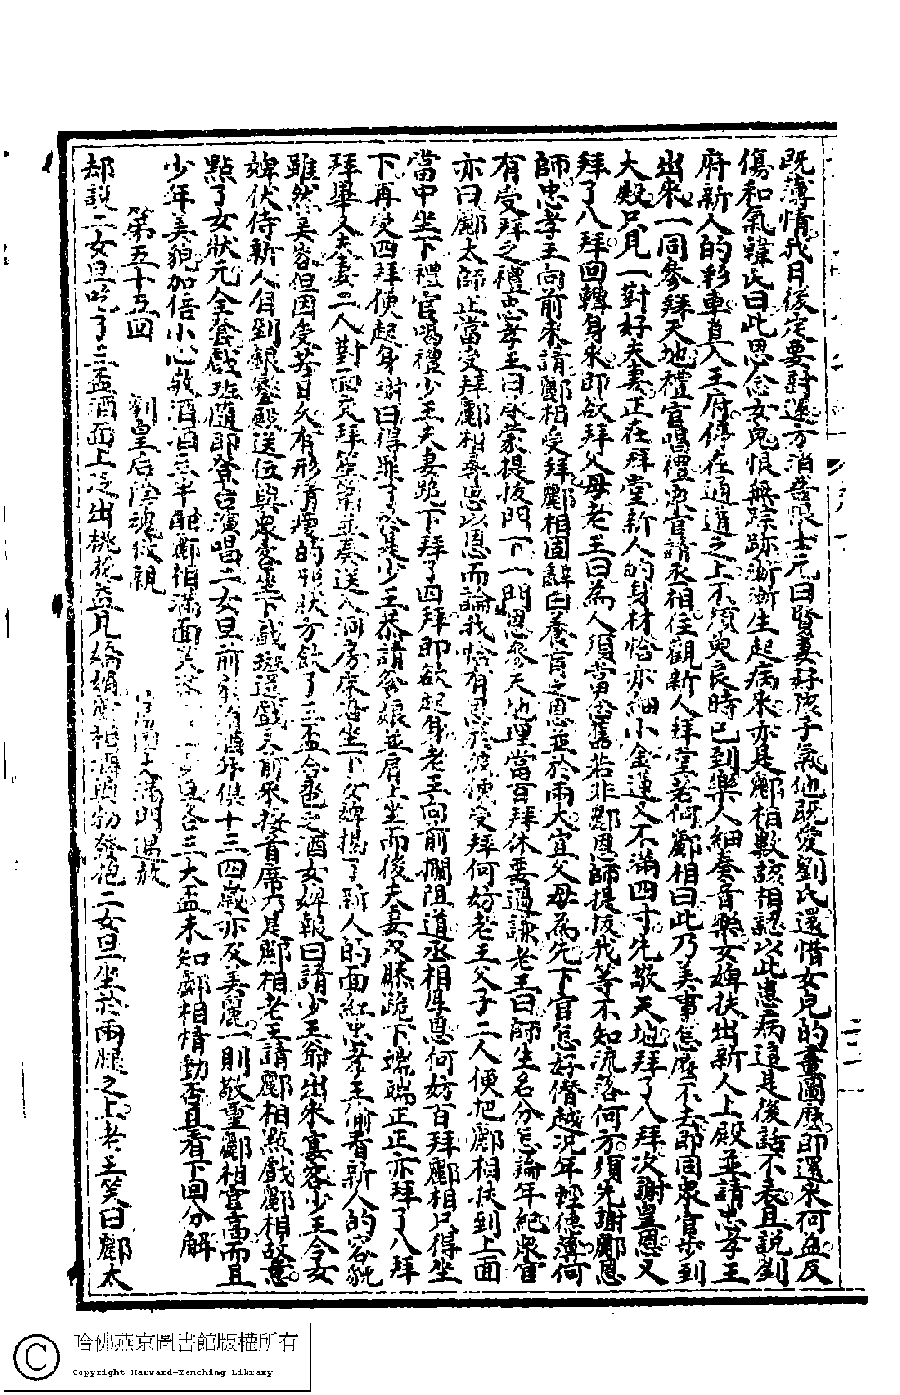 既薄情我日後定要對逑方消吾恨士元曰賢妻好孩子氣他既愛劉氏還惜女兒的畫圖麼即還來何益反
傷和氣韓氏曰此思念女兒恨無踪跡漸漸生起病來亦是酈相數該相認以此患病這是後話不表且說劉
府新人的彩車直入王府停在通道之上不須臾良時已到樂人細奏音樂女婢扶出新人上殿並請忠孝王
出來一同參拜天地禮官唱禮衆官請丞相往觀新人拜堂若何酈相曰此乃美事怎麼不去即同衆官步到
大殿只見一對好夫妻正在拜堂新人的身材恰亦細小金蓮又不滿四寸先敬天地拜了八拜次謝皇恩又
拜了八拜回轉身來即欲拜父母老王曰為人須當念舊若非酈恩師提拔我等不知流落何方須先謝酈恩
師忠孝王向前來請酈相受拜酈相固辭曰養育之恩並於兩大宜父母為先下官怎好僭越况年輕德薄何
有受拜之禮忠孝王曰門生蒙提拔門下一門恩參天地理當百拜休要過謙老王曰師生名分怎論年紀衆官
亦曰酈太師正當受拜酈相尋思以恩而論我恰有恩於彼便受拜何妨老王父子二人便把酈相扶到上面
當中坐下禮官喝禮少王夫妻跪下拜了四拜即欲起身老王向前攔阻道丞相厚恩何妨百拜酈相只得坐
下再受四拜便起身謝曰得罪了於是少王恭請爹娘並肩上坐而後夫妻双膝跪下端端正正亦拜了八拜
拜畢久夫妻二人對面交拜笙簫並奏送入洞房床邊坐下女婢揭了新人的面紅忠孝王偷看新人的容貌
雖然美容但因受苦日久有形消瘦的形狀方飲了三盃合巹之酒女婢報曰請少王爺出來宴客少王令女
婢伏侍新人自到銀鑾殿送位與衆客坐下戲班送戲文前來按首席乃是酈相老王請酈相點戲酈相故意
點了女狀元全套戲班隨即登台演唱二女旦前來 酒年俱十三四歲亦及美麗一則敬重酈相官高而且
少年美貌加倍小心敬酒酒至半酣酈相滿面笑容 二女旦各三大盃未知酈相情動否且看下回分解
第五十五回 劉皇后陰魂救親 滿門遇赦
却說二女旦吃了三盃酒面上泛出桃花益見嬌 二女旦坐於兩腿之上老王笑曰酈太
哈佛燕京圖書館版權所有
Copyright Harvard-Yenching Library